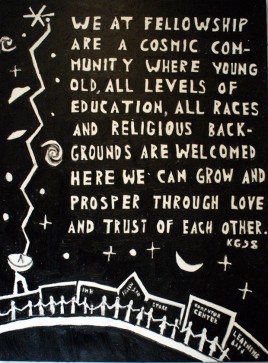 WE AT FELLOWSHIP
ARE A COSMIC COM-
MUNITY WHERE YOUNG
OLD, ALL LEVELS OF
EDUCATION, ALL RACES
AND RELIGIOUS BACK-
GROUNDS ARE WELCOMED
HERE WE CAN GROW AND
PROSPER THROUGH LOVE
AND TRUST OF EACH OTHER.
INN
STORE
CENTER
LEARNING